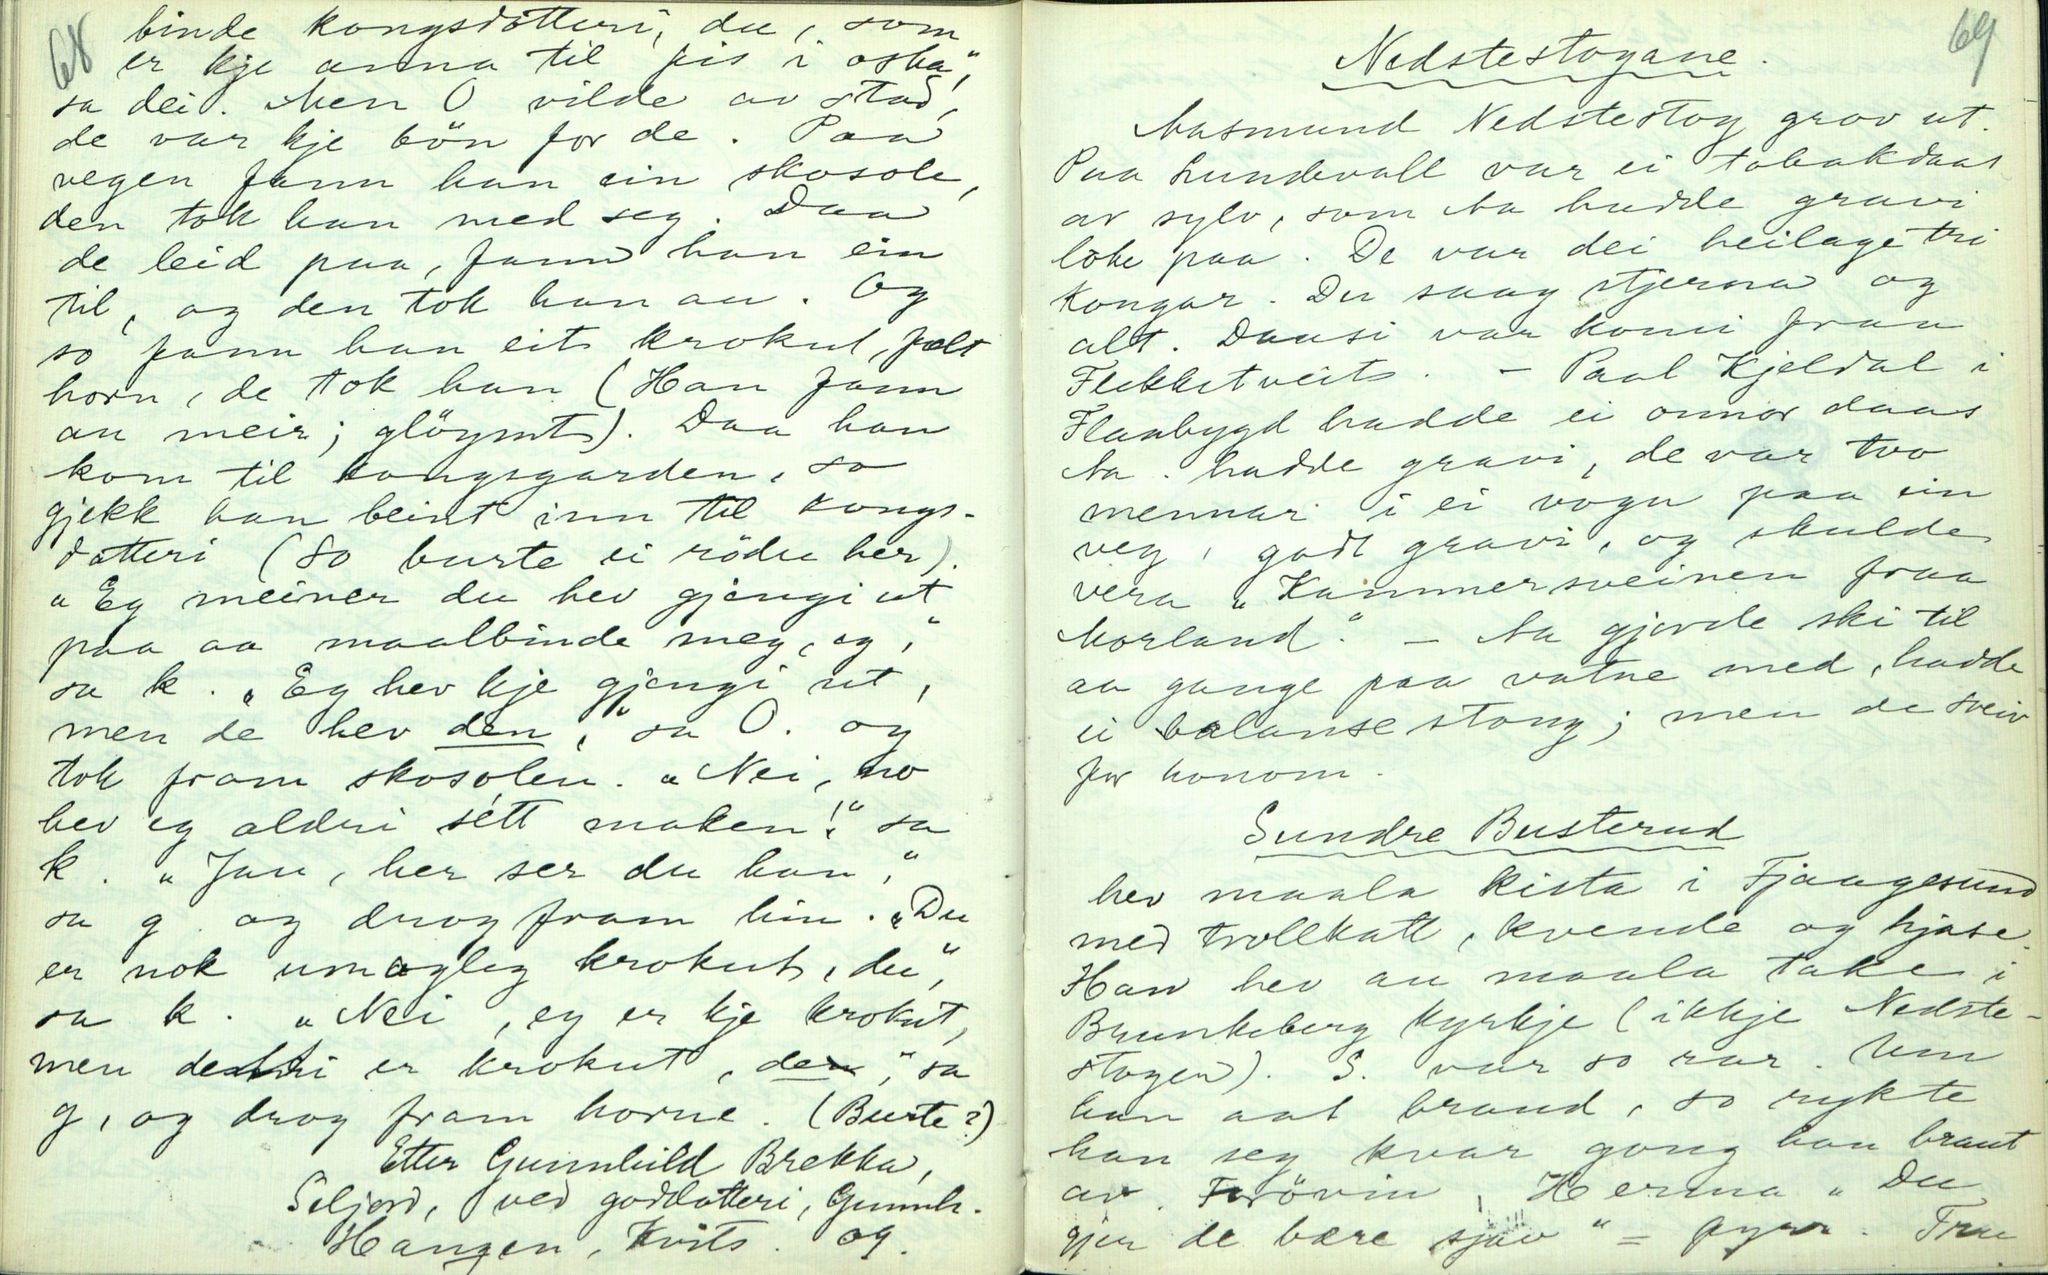 68
binde kongsdotteri, du, som
er kje anna til pis i oska",
sa dei. Men O vilde av stad,
de var kje bön for de. Paa
vegen fann han ein skosole,
den tok han med seg. Daa
de leid paa, fann han ein
til, og den tok han au. Og
so fann han eit krokut,
horn, de tok han (Han fann
au meir; glöymt). Daa han
kom til kongsgarden, so
gjekk han beint inn til kongs-
dotteri (so burte ei rödu her).
"Eg meiner du hev gjengi ut
paa aa maalbinde meg, eg",
sa k. "Eg hev kje gjengi ut,
men de hev den," sa O. og
tok fram skosolen. "Nei, no
hev eg aldri sétt maken!" sa
k. "Jau, her ser du han,"
sa g og drog fram hin. "Du
er nok umogleg krokut, du",
sa k. "Nei, eg er kje krokut,
men er krokut, den", sa
g, og drog fram horne. (Burte?)
Etter Gunnhild Brekka,
Seljord, ved goddotteri, Gunnh.
Haugen, Kvits. og.
69
Nedstestogane.
Aasmund Nedstestog grov ut.
Paa Lundevall var ei tobakdaas
av sylv, som Aa hadde gravi
loke paa. De var dei heilage tri
kongar. Du saag stjerna og
alt. Daasi var komi fraa
Flekkstveit. – Paal Kjeldal i
Flaabygd hadde ei onnor daas
Aa. hadde gravi, de var tvo
mennar i ei vogn paa ein
veg, godt gravi, og skulde
vera "Kammersveinen fraa
Morland". – Aa gjorde ski til
aa gange paa vatne med, hadde
ei balansestong; men de sveiv
for honom.
Sundre Busterud
hev maala kista i Fjaagesund
med trollkatt, kvende og hjase.
Han hev au maala take i
Brunkeberg kyrkje (ikkje Nedste-
stogen). S. var so rar. Um
han aat braud, so rykte
han seg kvar gong han braut
av. Herma "Du
gjer de bære sjöv" = Fraa